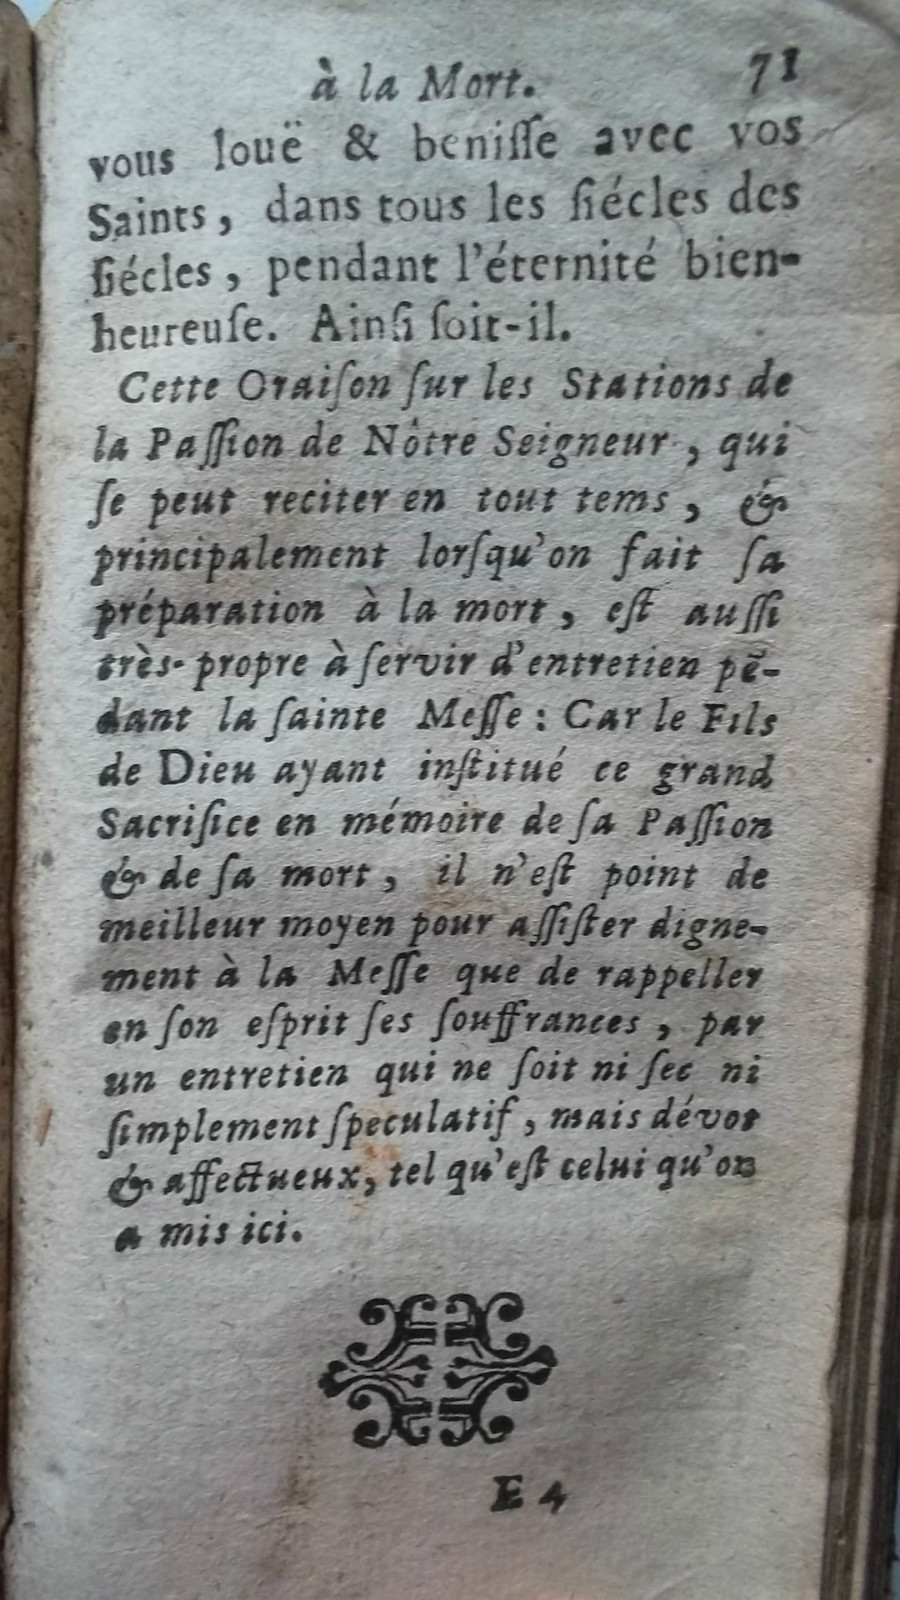 à la Mort. 71
vous louë & beniſſe avec vos
Saints, dans tous les ſiécles des
ſiécles, pendant l'éternité bien-
heureuſe. Ainſi ſoit-il.
Cette Oraiſon ſur les Stations de
la Paſſion de Nôtre Seigneur, qui
ſe peut reciter en tout tems, &
principalement lorſqu'on fait ſa
préparation à la mort, eſt auſſi
très-propre à ſervir d'entretien pē-
dant la ſainte Meſſe : Car le Fils
de Dieu ayant inſtitué ce grand
Sacrifice en mémoire de ſa Paſſion
& de ſa mort, il n'eſt point de
meilleur moyen pour aſſiſter digne-
ment à la Meſſe que de rappeller
en ſon eſprit ſes ſouffrances, par
un entretien qui ne ſoit ni ſec ni
ſimplement ſpeculatif, mais dévot
& affectueux, tel qu'eſt celui qu'on
a mis ici.
E 4